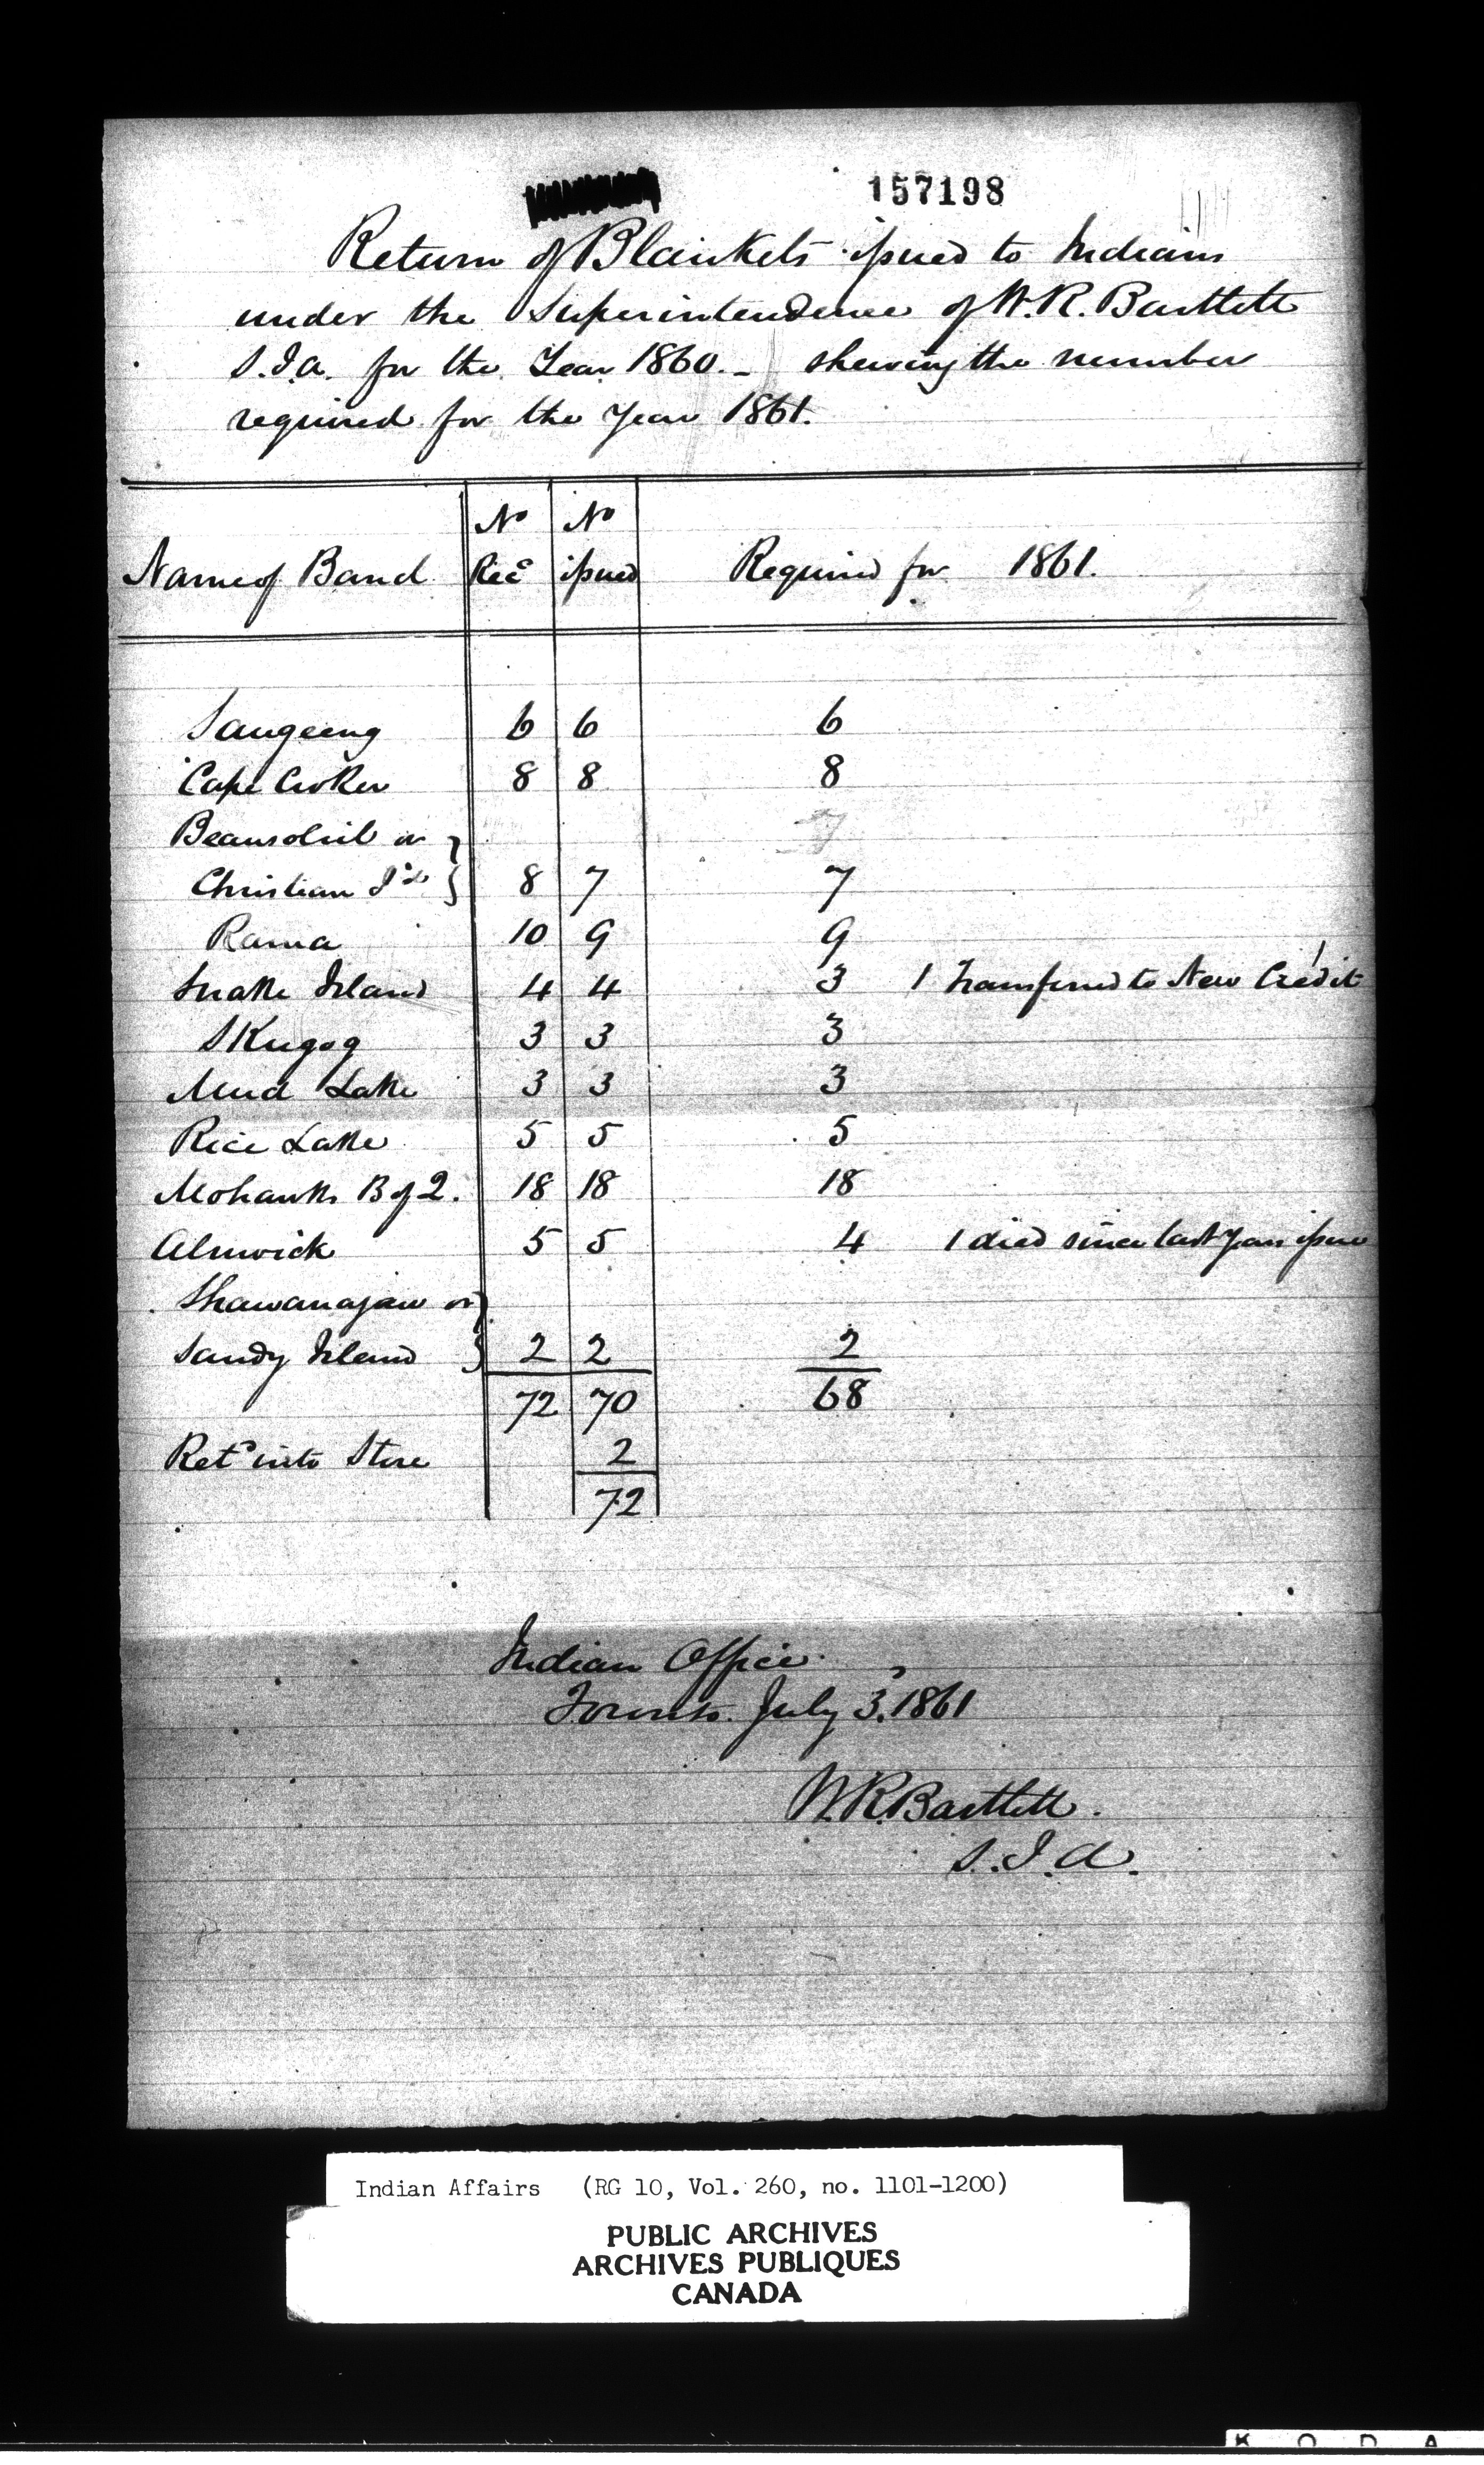 157198
Return of Blankets issued to Indians
under the Superintendence of W. R. Bartlett
S.I.A. for the Year 1860. - shewing the number
required for the Year 1861.
Name of Band No Recd No issued Required for 1861.
Saugeeng 6 6 6
Cape Croker 8 8 8
Beausoliel or
Christian Id 8 7 7
Rama 10 9 9
Snake Island 4 4 3 1 Transferred to New Credit
Skugog 3 3 3
Mud Lake 3 3 3
Rice Lake 5 5 5
Mohawks B of Q. 18 18 18
Alnwick 5 5 4 1 died since last years issue
Shawanagaw or
Sandy Island 2 2 2
72 70 68
Retd into Store 2
72
Indian Office
Toronto July 3, 1861
W. R. Bartlett.
S.I.A.
Indian Affairs (RG 10, Vol. 260, no. 1101-1200)
PUBLIC ARCHIVES
ARCHIVES PUBLIQUES
CANADA
K O D A